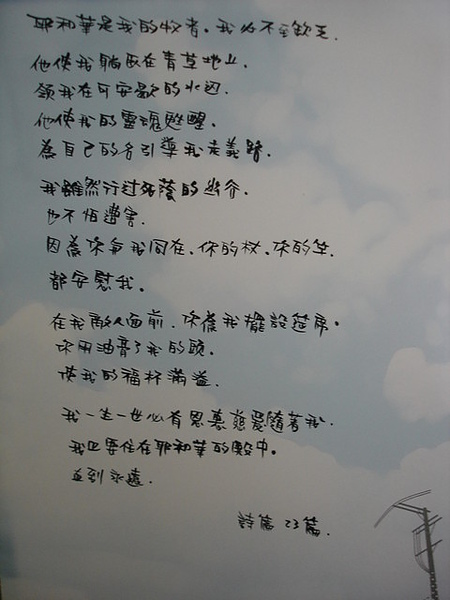 耶和華是我的牧者。我必不至缺乏.
他使我躺臥在青草地上.
領我在可安歇的水边.
他使我的靈魂甦醒.
為自己的名引導我走義路.
我雖然行过死蔭的幽谷.
也不怕遭害.
因為你與我同在.你的杖.你的竿.
都安慰我。
在我敵人面前.你為我擺設筵席。
你用油膏了我的頭.
使我的福杯滿溢.
我一生一世必有恩惠慈愛隨著我.
我且要住在耶和華的殿中。
直到永遠.
詩篇 23篇.